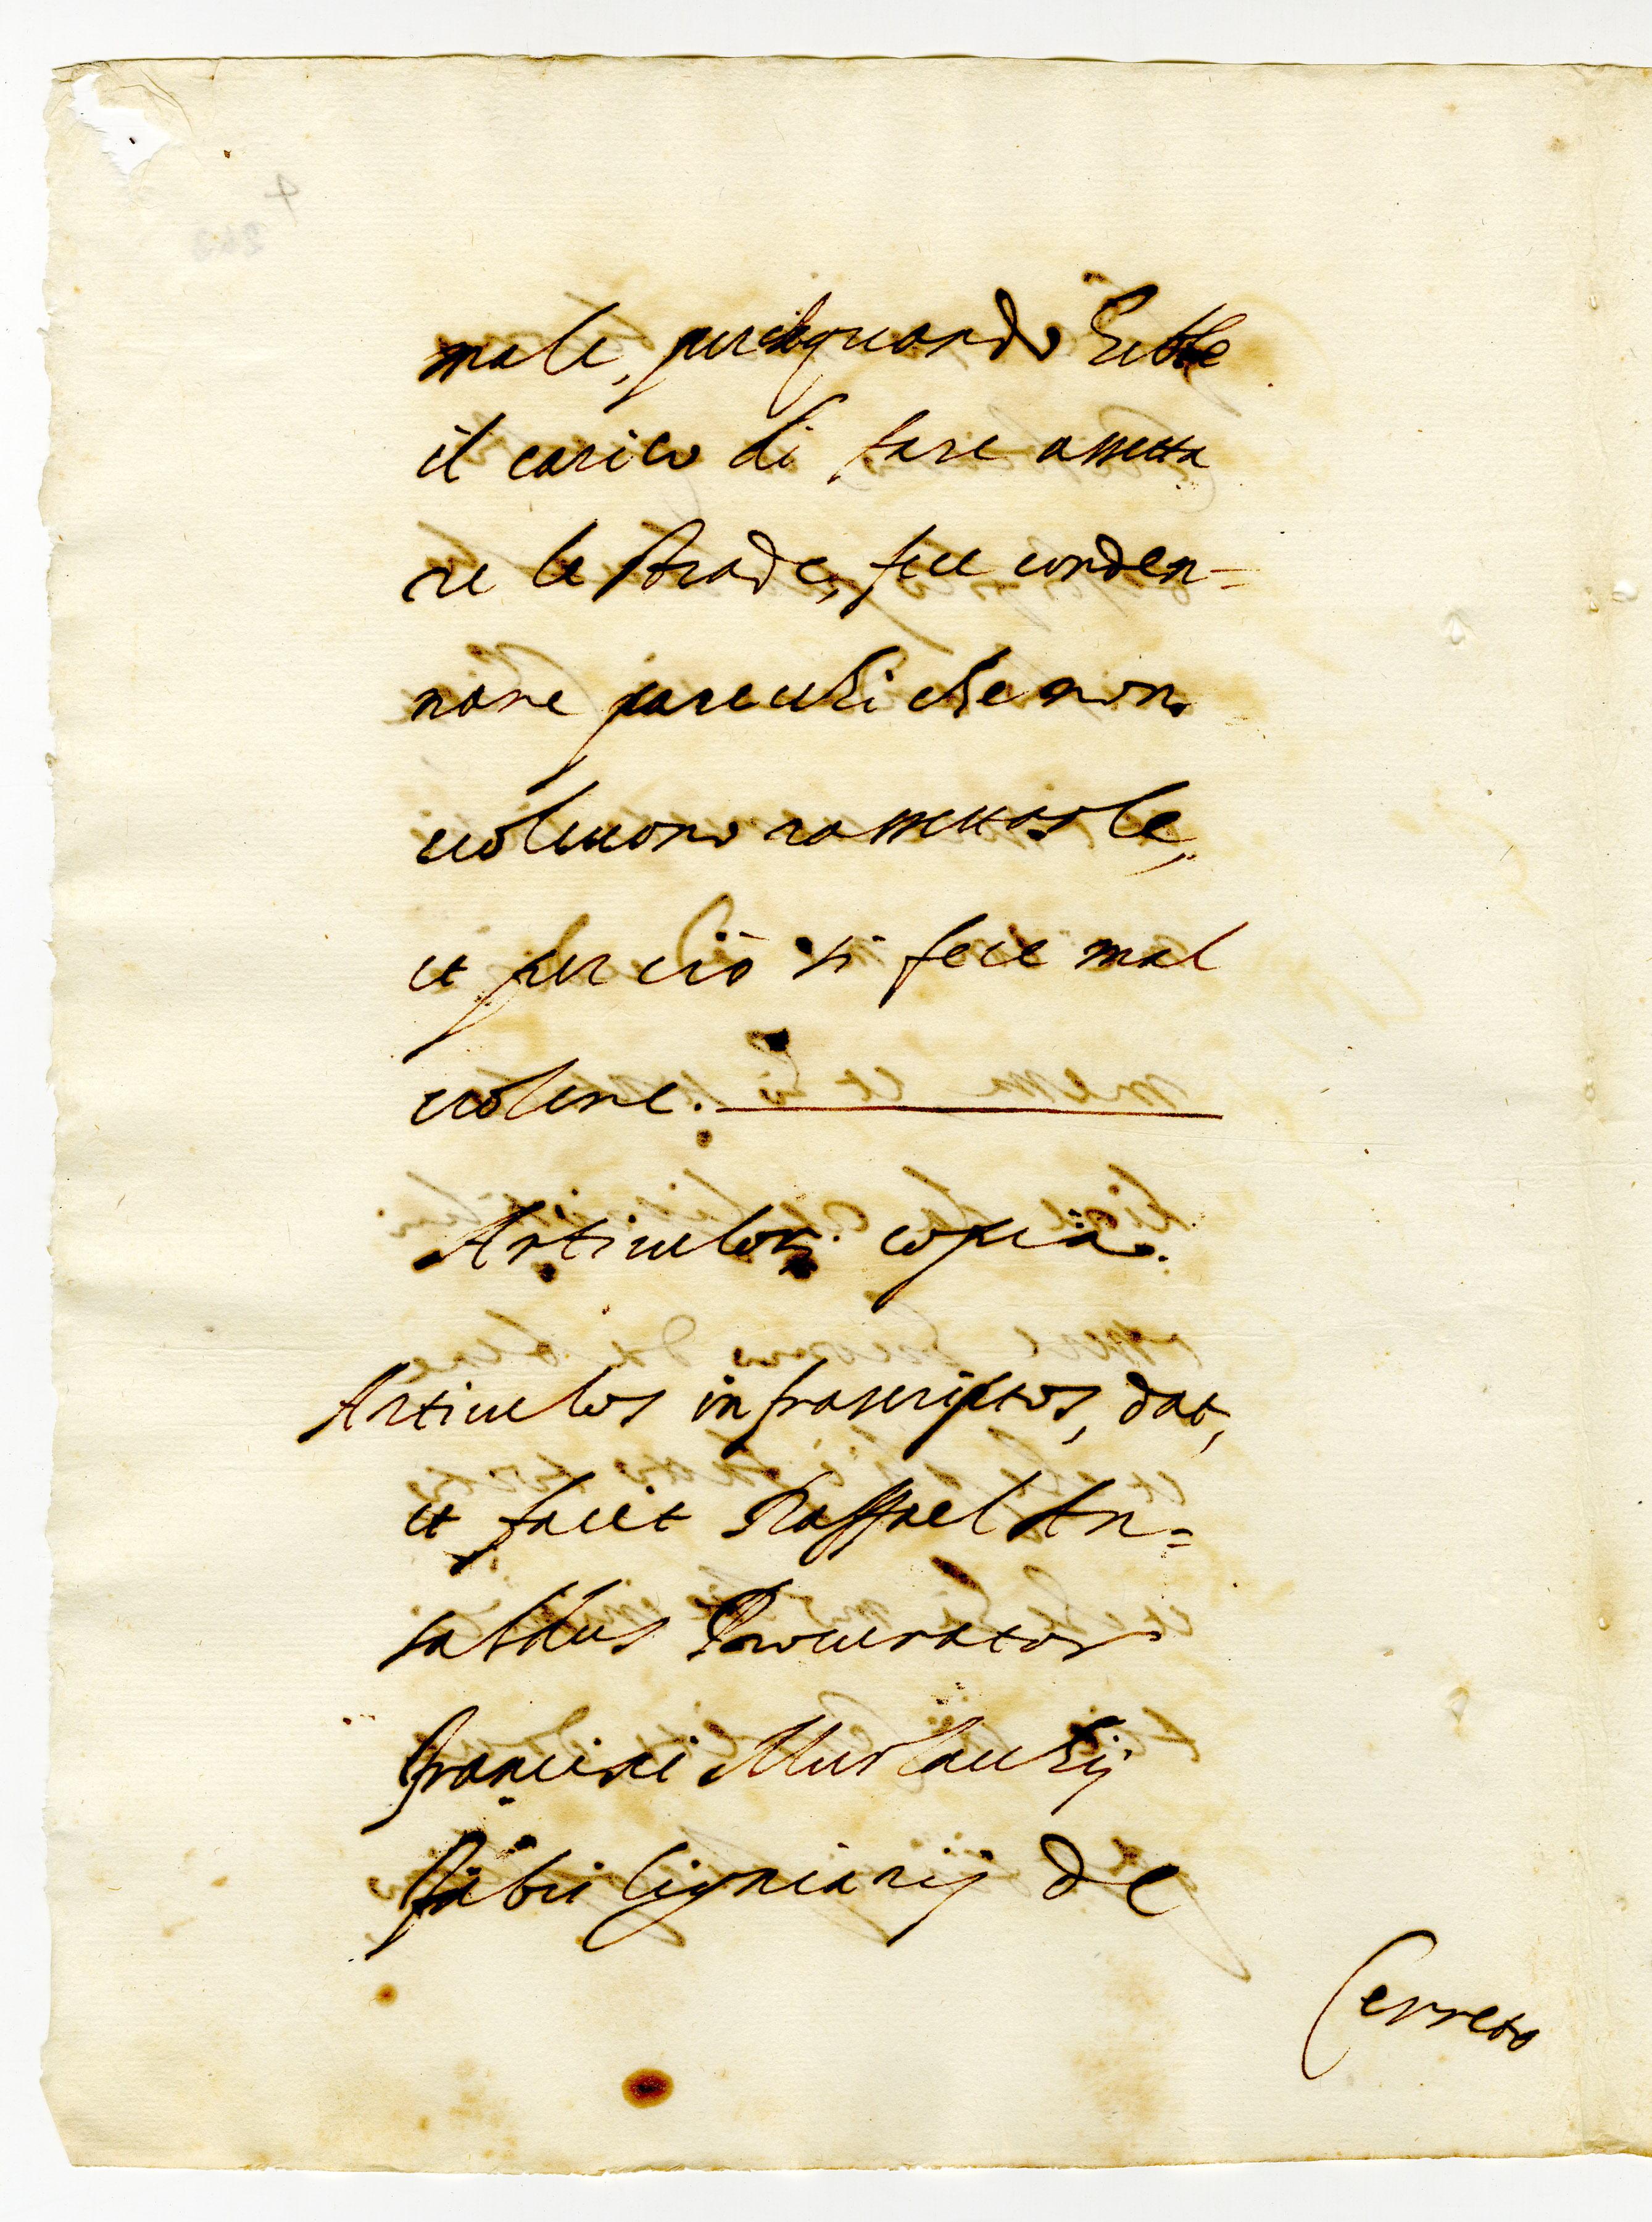 male, perche quando hebbe
il carico di fare assetta
re le strade, fece conden-
nare parecchi che non
volueono rassettarle,
et per ciò si fece mal
volere.
Articulor. copia.
Articulos infrascriptos, dat,
et facit Raffael An=
saldus Procurator
Francisci
Fabri lignarij de
Cerreto